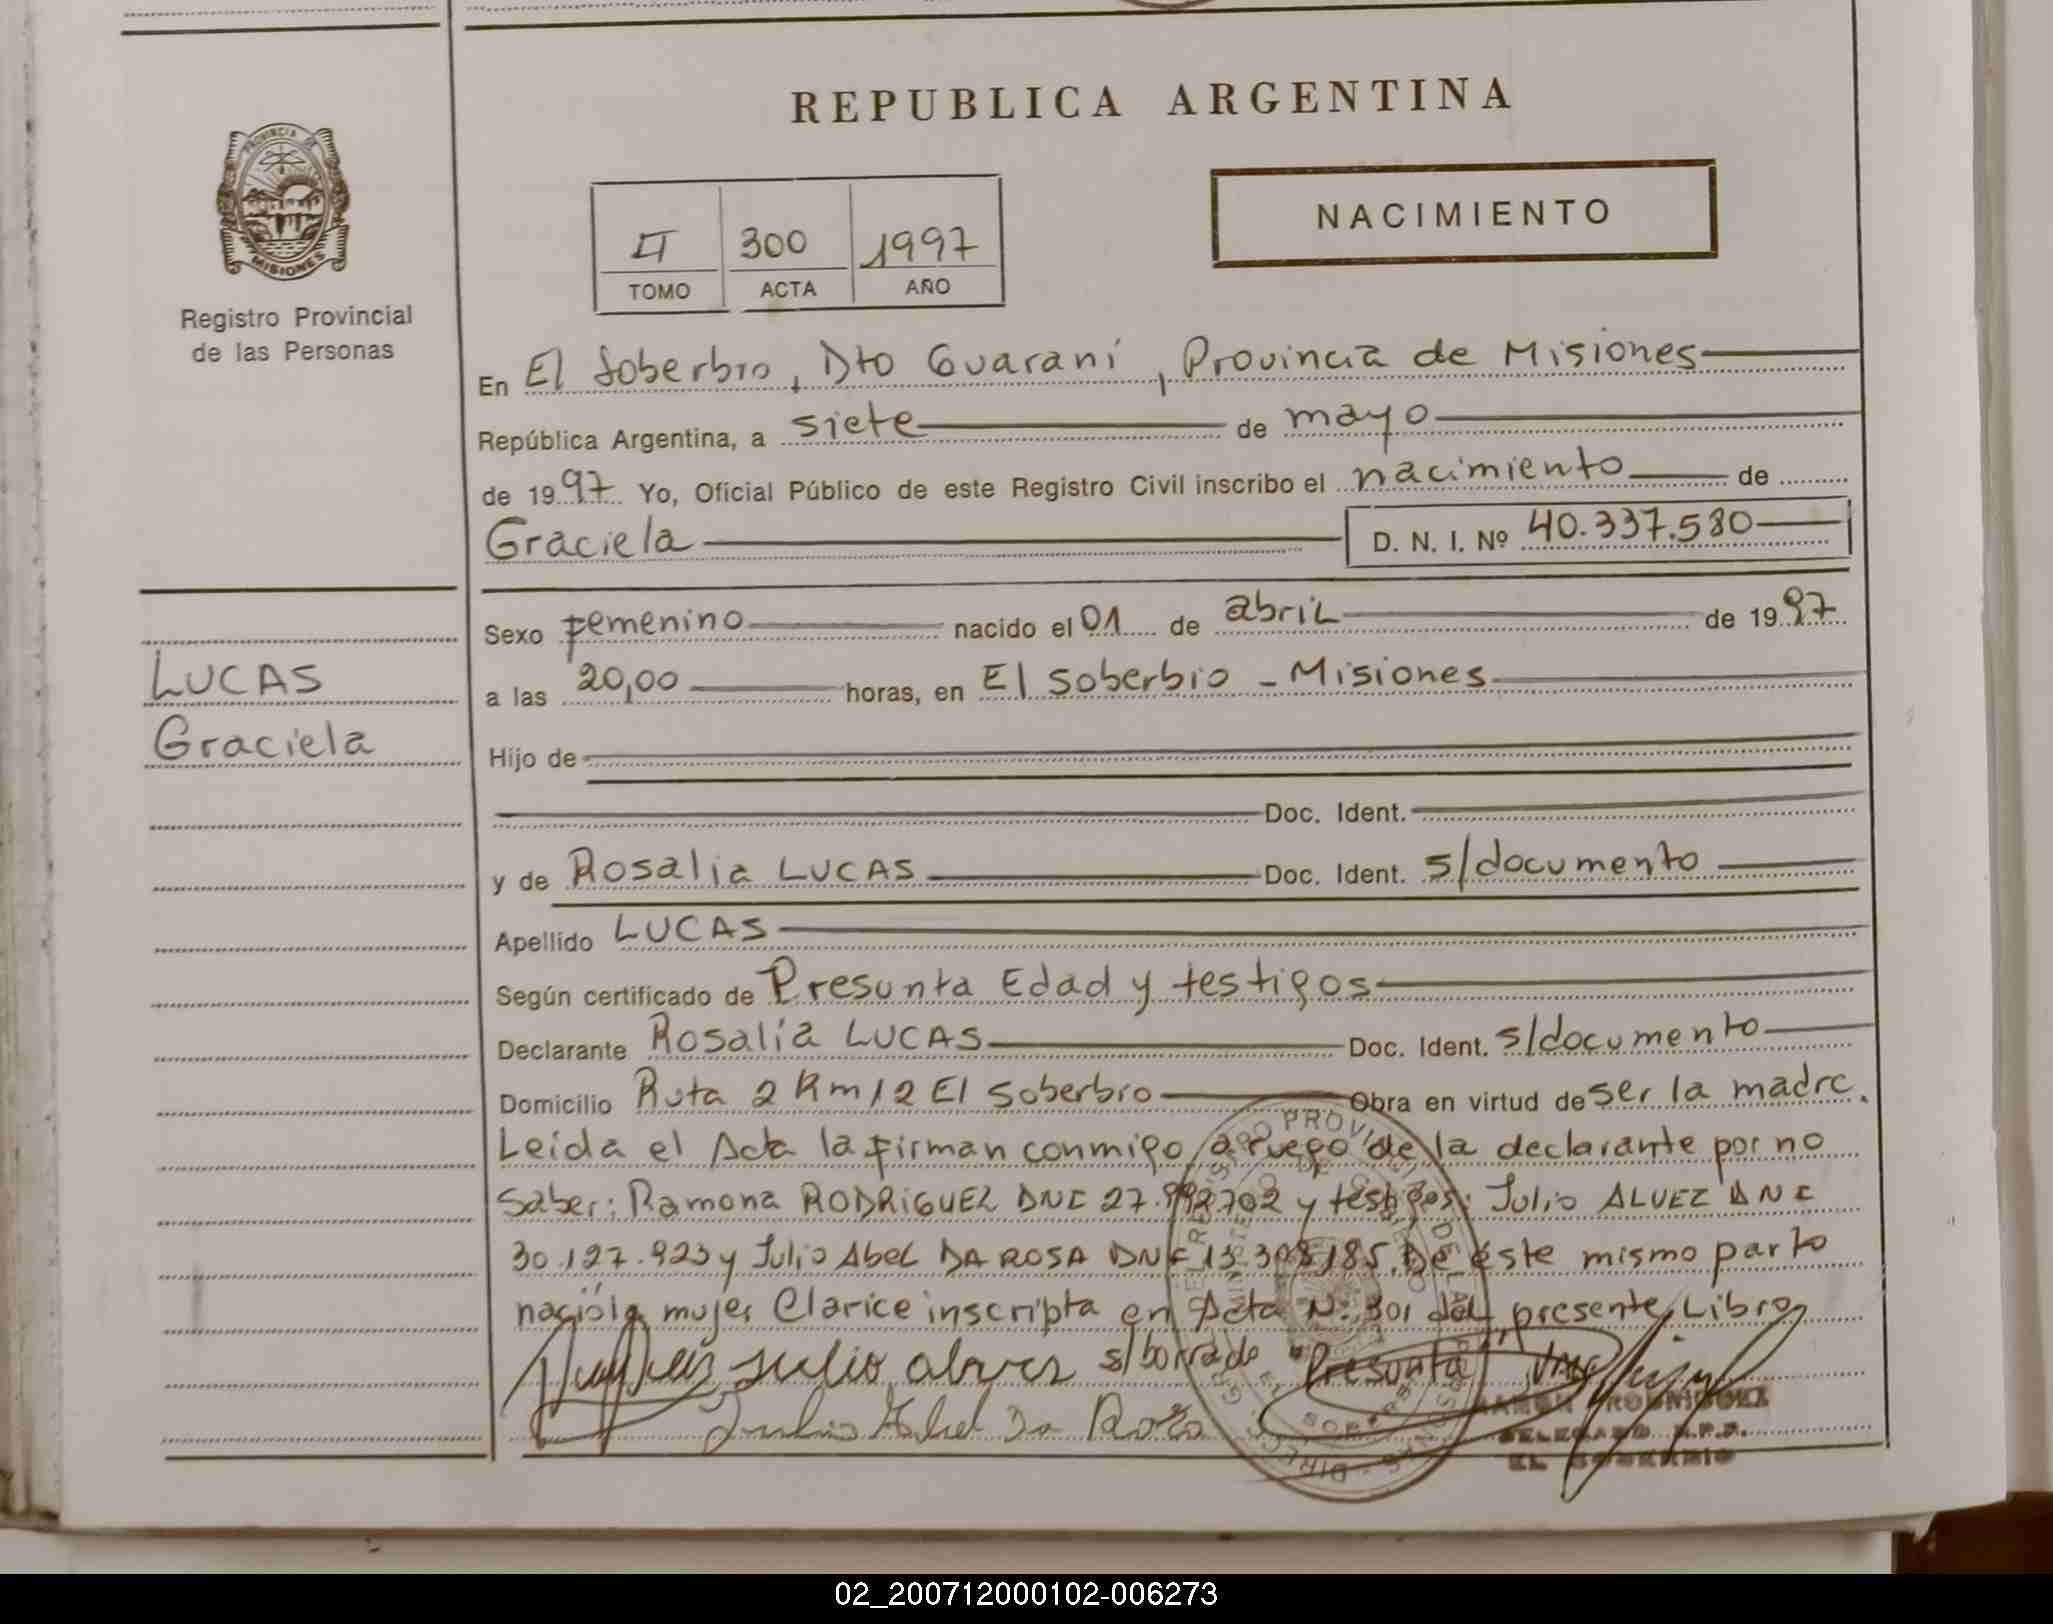 REPUBLICA ARGENTINA
PROVINCIA DE
MISIONES
Registro Provincial
de las Personas
II 300 1997
TOMO ACTA AÑO
NACIMIENTO
En El Soberbio, Dto Guaraní, Provincia de Misiones
República Argentina, a siete de mayo
de 1997 Yo, Oficial Público de este Registro Civil inscribo el nacimiento de
Graciela D. N. I. Nº 40.337.580
Sexo femenino nacido el 01 de abril de 1997
LUCAS
a las 20,00 horas, en El Soberbio - Misiones
Graciela
Hijo de
Doc. Ident.
y de Rosalia LUCAS Doc. Ident. s/documento
Apellido LUCAS
Según certificado de Presunta Edad y testigos
Declarante Rosalía LUCAS Doc. Ident. s/documento
Domicilio Ruta 2 Km 12 El Soberbio Obra en virtud de ser la madre.
Leida el Acta la firman conmigo a ruego de la declarante por no
saber: Ramona RODRIGUEZ DNI 27. y testigos: Julio ALVEZ DNI
30.127.923 y Julio Abel DA ROSA DNI De éste mismo parto
nació la mujer Clarice inscripta en Acta N: 301 del presente Libro
Julio alves s/borrado "Presunta" vale
Julio Abel Da Rosa
RAMON RODRIGUEZ
DELEGADO R.P.P.
EL SOBERBIO
02_200712000102-006273